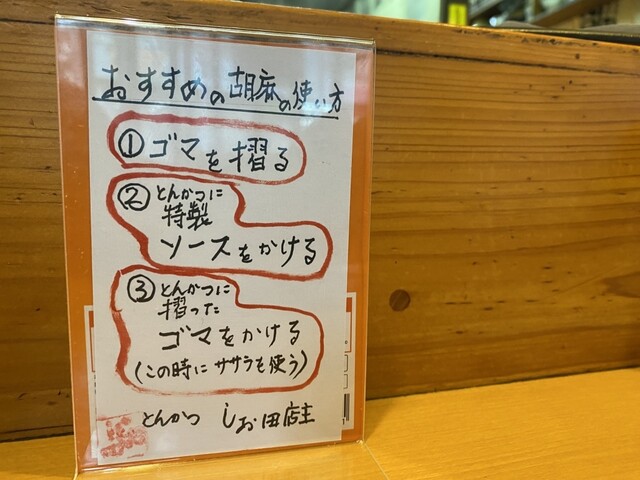 おすすめの胡麻の使い方
①ゴマを摺る
②とんかつに
特製
ソースをかける
③とんかつに
摺った
ゴマをかける
(この時にササラも使う)
とんかつ しお田店主